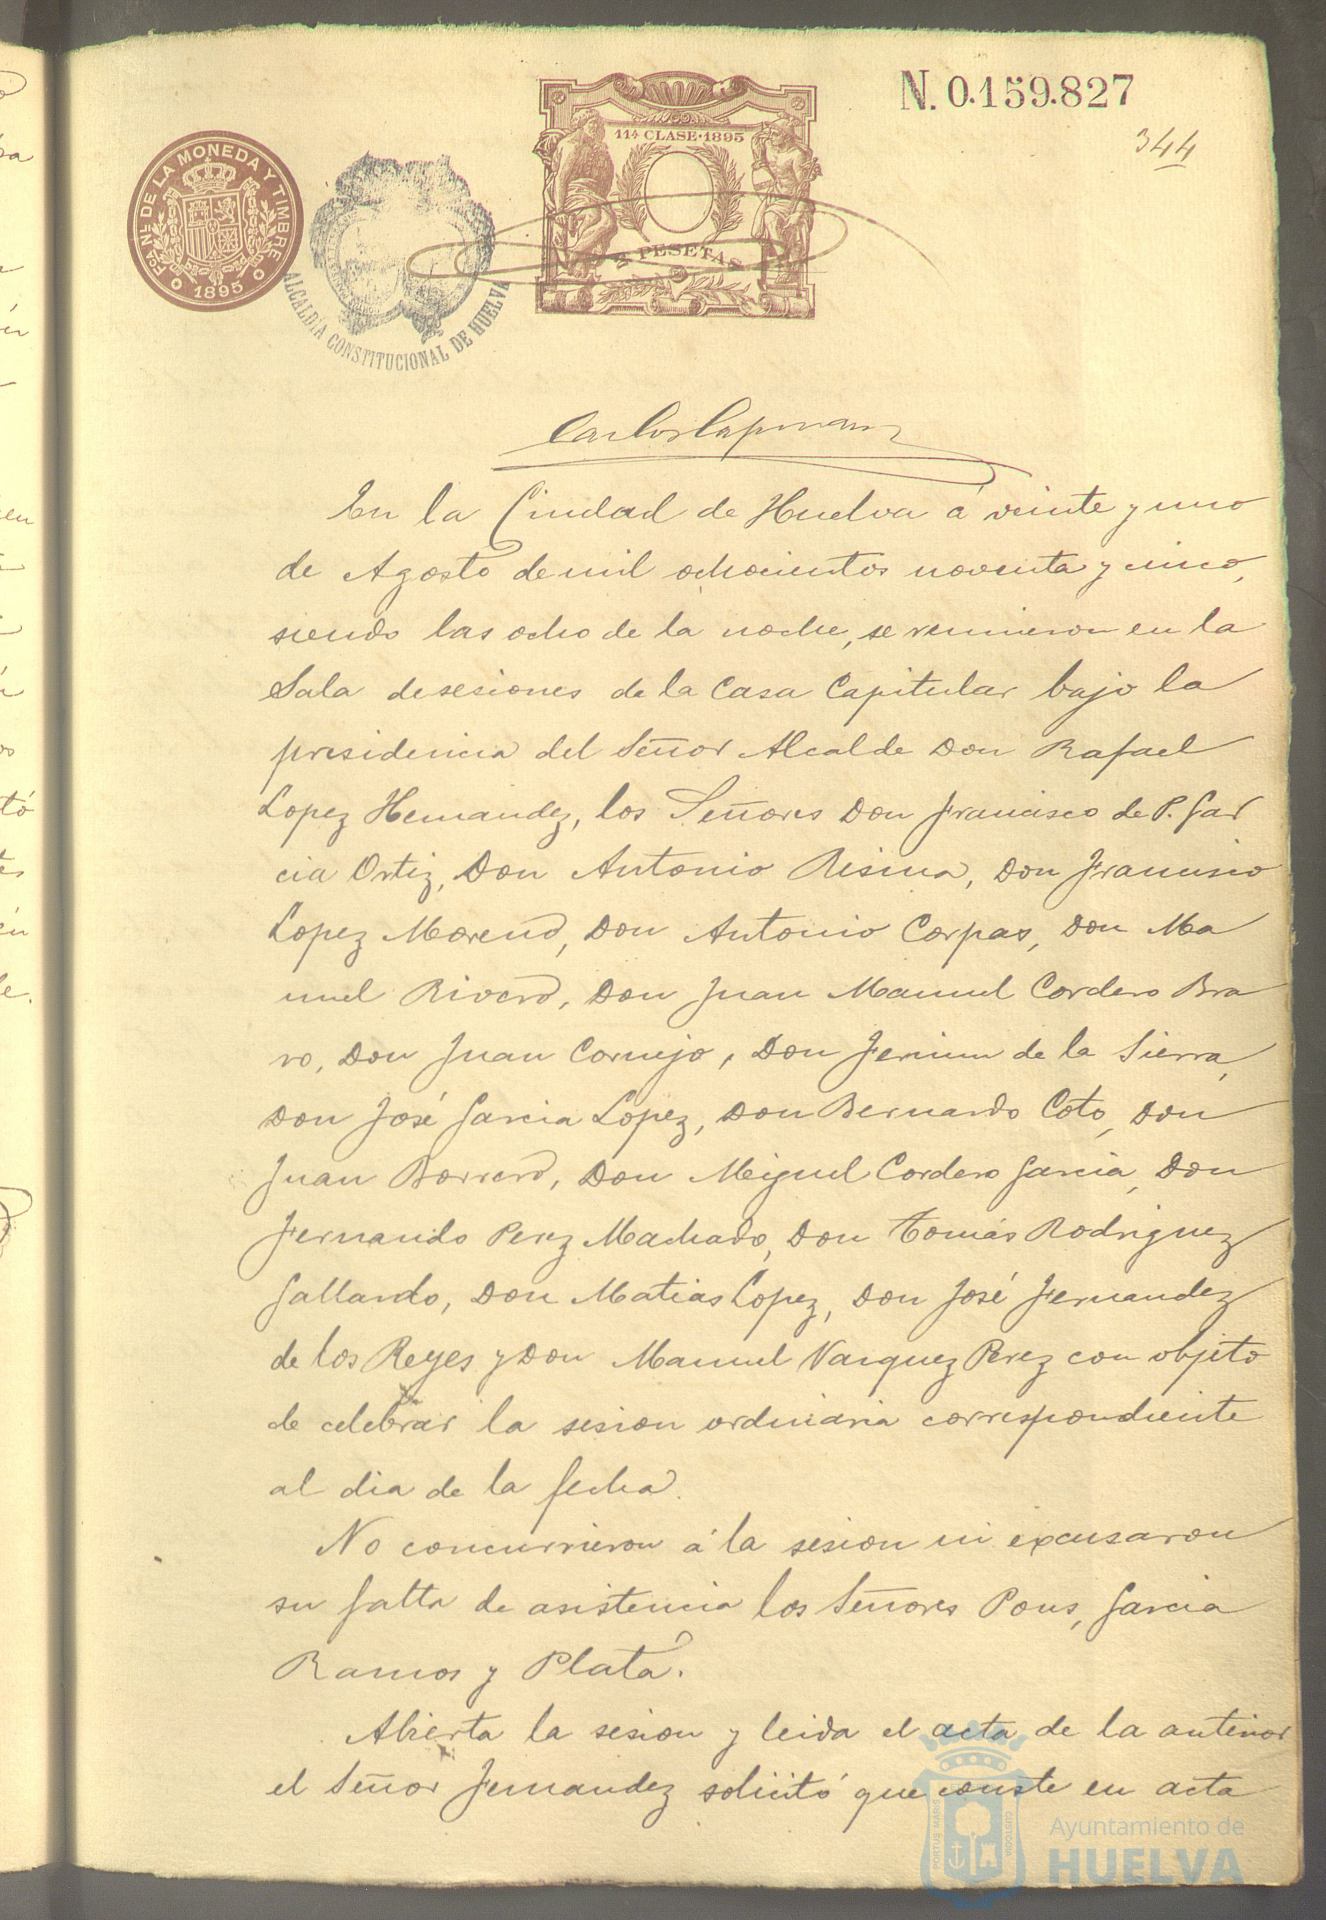 N. 0.159.827
344
11ª CLASE·1895
2 PESETAS
FCA NL DE LA MONEDA Y TIMBRE
1895
ALCALDÍA CONSTITUCIONAL DE HUELVA
Carlos
En la Ciudad de Huelva á veinte y uno
de Agosto de mil ochocientos noventa y cinco,
siendo las ocho de la noche, se reunieron en la
Sala de sesiones de la Casa Capitular bajo la
presidencia del Señor Alcalde Don Rafael
Lopez Hernandez, los Señores Don Francisco de P. Gar
cia Ortiz, Don Antonio Resina, Don Francisco
Lopez Moreno, Don Antonio Corpas, Don Ma
nuel Rivero, Don Juan Manuel Cordero Bra
vo, Don Juan Cornejo, Don Fermin de la Sierra,
Don José Garcia Lopez, Don Bernardo Coto, Don
Juan Borrero, Don Miguel Cordero Garcia, Don
Fernando Perez Machado, Don Tomás Rodriguez
Gallardo, Don Matias Lopez, Don José Fernandez
de los Reyes y Don Manuel Vazquez Perez con objeto
de celebrar la sesion ordinaria correspondiente
al dia de la fecha.
No concurrieron á la sesion ni excusaron
su falta de asistencia los Señores Pons, Garcia
Ramos y Plata.
Abierta la sesion y leida el acta de la anterior
el Señor Fernandez solicitó que conste en acta
PORTUS MARIS
CUSTODIA
Ayuntamiento de
HUELVA